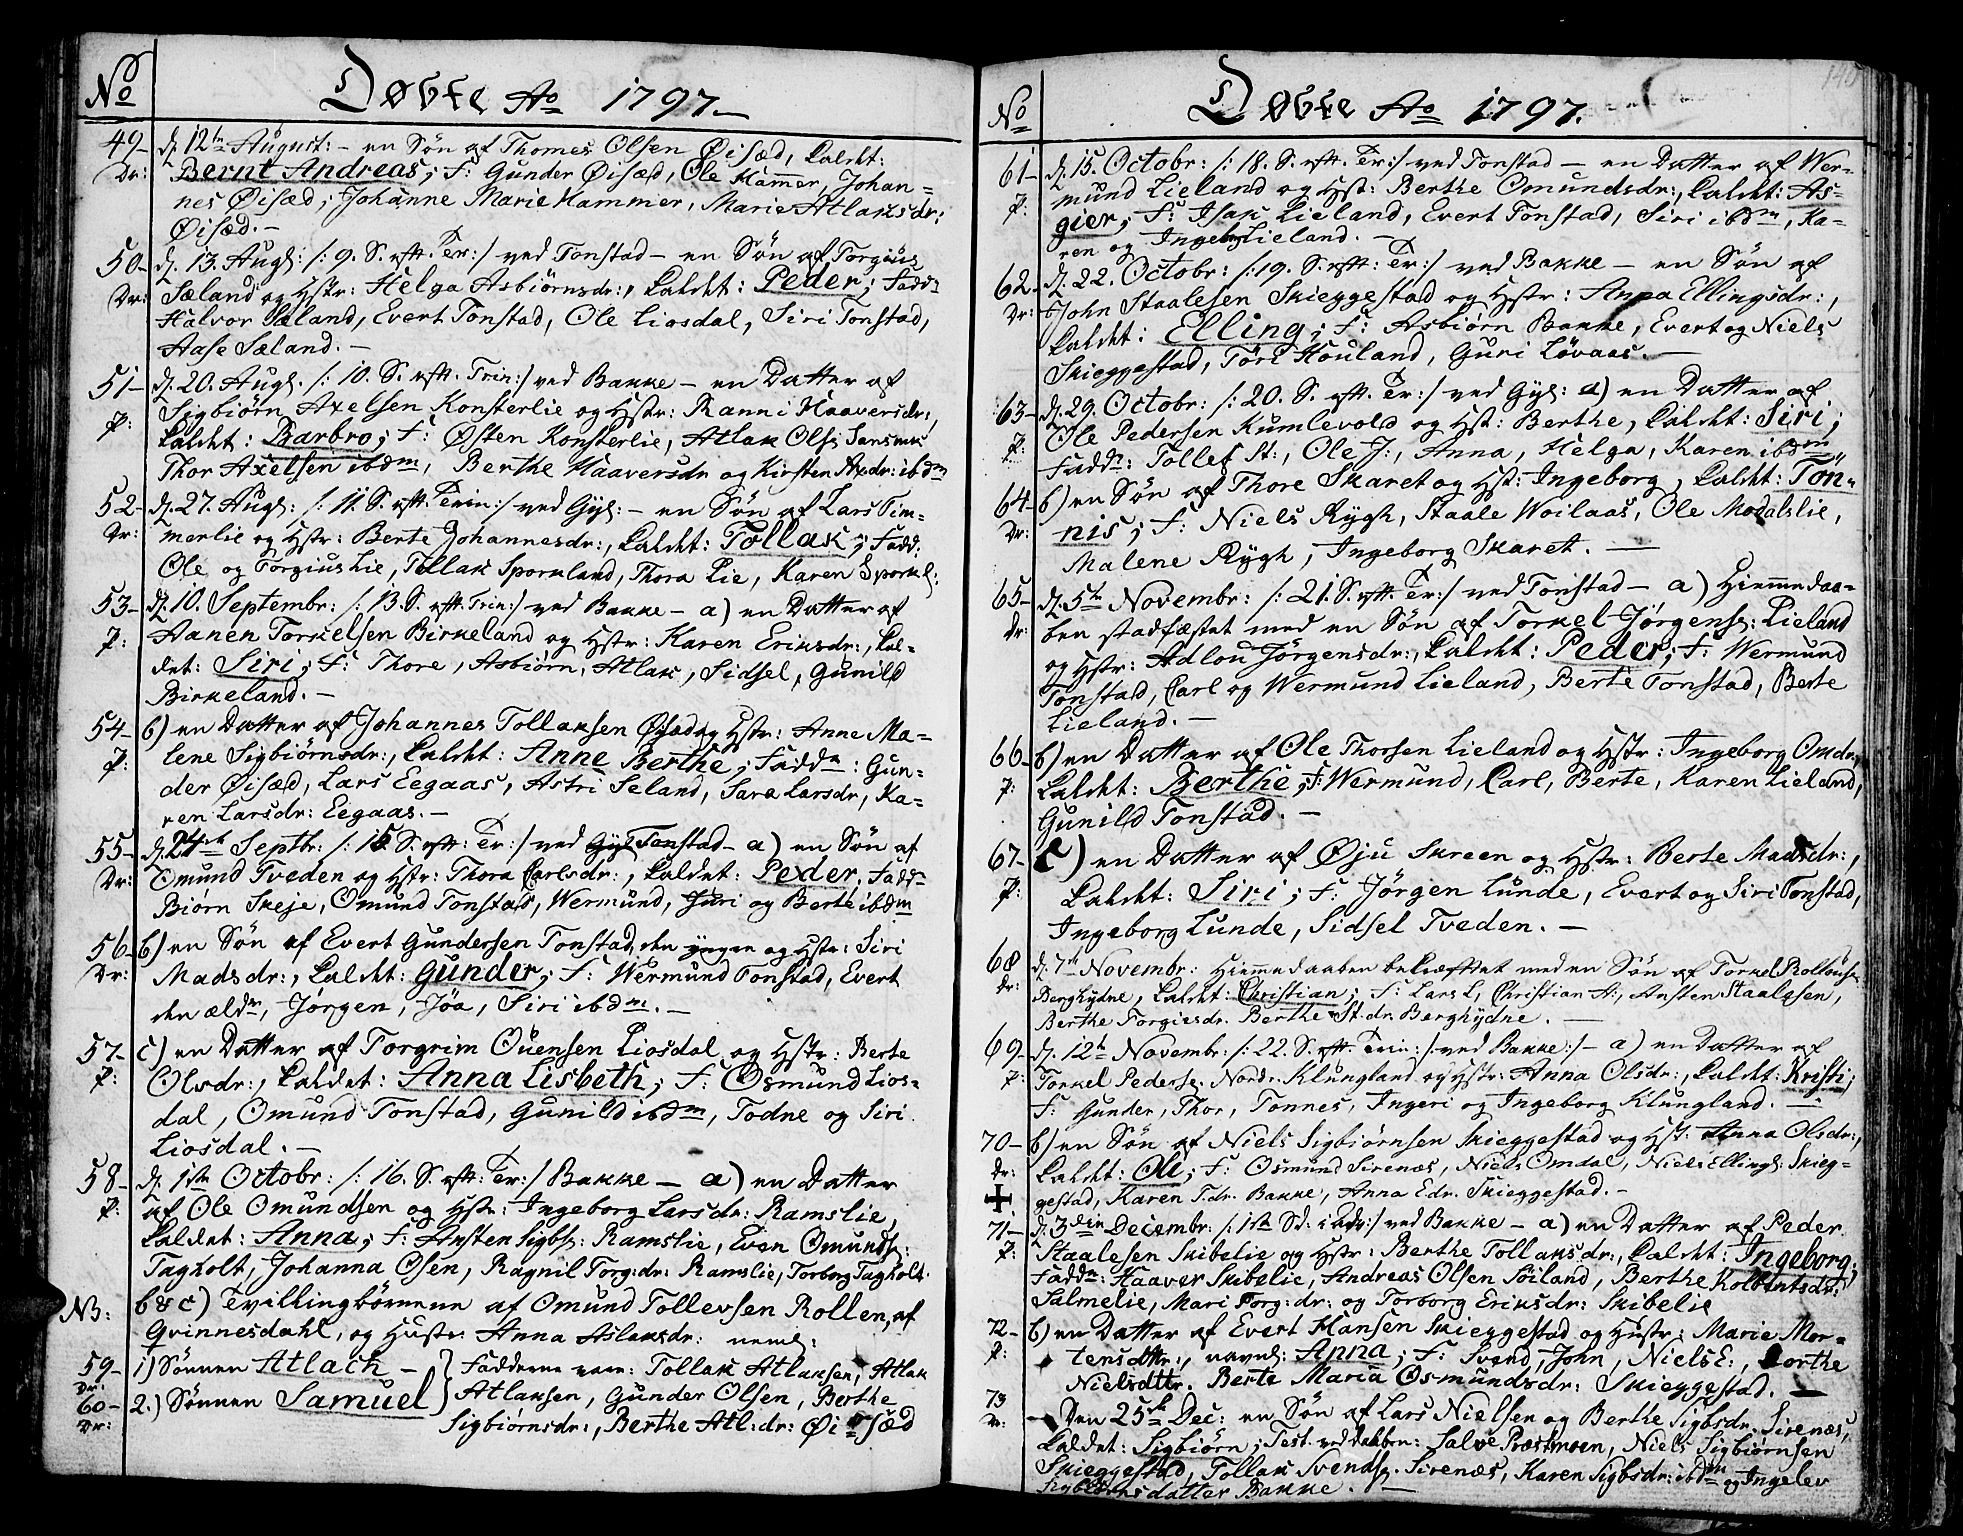 No
Døbte Ao 1797.
49- d. 12te August: - en Søn af Thomes Olsen Øisæd, kaldet:
Dr: Bernt Andreas; F: Gunder Øisæd, Ole Hammer, Johan=
nes Øisæd, Johanne Marie Hammer, Marie Atlaksdr:
Øisæd. -
50- d. 13. Augs: /: 9. S. eft. Tr: :/ ved Tonstad - en Søn af Torgius
Dr: Sæland og Hstr: Helga Asbiørnsdr:, kaldet: Peder; Fadd:
Halvor Sæland, Evert Tonstad, Ole Liosdal, Siri Tonstad,
Aase Sæland. -
51- d. 20. Augs. /: 10. S. eft. Trin: :/ ved Bakke - en Datter af
P: Sigbiørn Axelsen Konsterlie og Hstr: Ranni Haaversdr:,
kaldet: Barbro; F: Østen Konsterlie, Atlak Ols:
Thor Axelsen ibdm, Berthe Haaversdr og Kirsten Axdr: ibdm
52- d. 27. Augs: /: 11. S. eft. Trin: :/ ved Gyl: - en Søn af Lars Tim=
Dr: merlie og Hstr: Berte Johannesdr:, kaldet: Tollak; Fadd:
Ole og Torgius Lie, Tollak Sporkland, Thora Lie, Karen Sporkl:
53- d. 10. Septembr: /: 13. S. eft. Trin: :/ ved Bakke - a) en Datter af
P: Aanen Torkelsen Birkeland og Hstr: Karen Eriksdr:, kal=
det: Siri; F: Thore, Asbiørn, Atlak, Sidsel, Gunild
Birkeland. -
54- b) en Datter af Johannes Tollaksen Øisæd og Hstr: Anne Ma=
P: lene Sigbiørnsdr:, kaldet: Anne Berthe; Fadd: Gun=
der Øisæd, Lars Eegaas, Astri Seland, Sara Larsdr, Ka=
ren Larsdr: Eegaas. -
55- d. 24de Septbr: /: 15 S. eft: Tr: :/ ved Gyl Tonstad - a) en Søn af
Dr: Omund Tveden og Hstr: Thora Carlsdr:, kaldet: Peder, Fadd:
Biørn Skeje, Omund Tonstad, Wermund, Juri og Berte ibdm
56- b) en Søn af Evert Gundersen Tonstad, den yngre og Hstr: Siri
Dr: Madsdr:, kaldet: Gunder; F: Wermund Tonstad, Evert
den ældr, Jørgen, Jøa, Siri ibdm. -
57- c) en Datter af Torgrim Ouensen Liosdal og Hstr: Berte
P: Olsdr:, kaldet: Anna Lisbeth; F: Osmund Lios=
dal, Omund Tonstad, Gunild ibdm, Todne og Siri
Liosdal. -
58- d. 1ste Octobr: /: 16. S. eft: Tr: :/ Bakke - a) en Datter
P: af Ole Omundsen og Hstr: Ingeborg Larsdr: Ramslie,
kaldet: Anna; F: Austen Sigbs: Ramslie, Even Omunds:
Tagholt, Johanna Osen, Ragnil Torg:dr: Ramslie, Torborg Tagholt.
NB: b & c) Tvillingbørnene af Omund Tollevsen Rollen, af
Qvinnesdahl, og Hustr: Anna Aslaksdr: neml:
59- Dr: 1) Sønnen Atlach - } Fadderne vare: Tollak Atlaksen, Atlak
60- Dr: 2.) Sønnen Samuel } Atlaksen, Gunder Olsen, Berthe
Sigbiørnsdr:, Berthe Atl:dr: Øisæd
140
No
Døbte Ao 1797.
61- d. 15. Octobr: /: 18. S. eft. Tr: :/ ved Tonstad - en Datter af Wer=
P: mund Lieland og Hstr: Berthe Omundsdr:, kaldet: As=
gier; F: Isak Lieland, Evert Tonstad, Siri ibdm, Ka=
ren og Ingeborg Lieland. -
62- d. 22. Octobr: /: 19. S. eft: Tr: :/ ved Bakke - en Søn af
Dr: John Staalesen Skieggestad og Hstr: Anna Ellingsdr:,
kaldet: Elling; F: Asbiørn Bakke, Evert og Niels
Skieggestad, Tori Houland, Guri Løvaas. -
63- d. 29. Octobr: /: 20. S. eft. Tr: :/ ved Gyl: a) en Datter af
P: Ole Pedersen Kumlevold og Hst: Berthe, kaldet: Siri;
Faddr: Tollef St:, Ole J:, Anna, Helga, Karen ibdm
64- b) en Søn af Thore Skaret og Hst: Ingeborg, kaldet: Tön=
Dr: nis; F: Niels Rygh, Staale Woilaas, Ole Modalslie,
Malene Rygh, Ingeborg Skaret. -
65- d. 5te Novembr: /: 21. S. eft. Tr: :/ ved Tonstad - a) Hiemmedaa=
Dr: ben stadfæstet med en Søn af Torkel Jørgens: Lieland
og Hstr: Adlou Jørgensdr:, kaldet: Peder; F: Wermund
Tonstad, Carl og Wermund Lieland, Berte Tonstad, Berte
Lieland. -
66- b) en Datter af Ole Thorsen Lieland og Hstr: Ingeborg Omdr:,
P: kaldet: Berthe; F: Wermund, Carl, Berte, Karen Lieland,
Gunild Tonstad. -
67- c) en Datter af Øju Skreen og Hstr: Berte Madsdr:,
P: kaldet: Siri; F: Jørgen Lunde, Evert og Siri Tonstad,
Ingeborg Lunde, Sidsel Tveden. -
68 d. 7de Novembr: Hiemmedaaben bekræftet med en Søn af Torkel
Dr: Berghydne, kaldet: Christian; F: Lars L, Christian A:, Austen Staalesen,
Berthe Torgiesdr. Berthe St:dr. Berghydne. -
69- d. 12te Novembr: /: 22. S. eft. Trin: :/ ved Bakke :/ - a) en Datter af
P: Torkel Peders: Nordr Klungland og Hstr: Anna Olsdr:, kaldet: Kristi;
F: Gunder, Thor, Tonnes, Ingeri og Ingeborg Klungland. -
70- b) en Søn af Niels Sigbiørnsen Skieggestad og Hst: Anna Olsdr:,
Dr: kaldet: Ole; F: Osmund Sirenæs, Niels Omdal, Niels Ellings: Skieg=
+ gestad, Karen T.dr. Bakke, Anna E.dr. Skieggestad. -
71- d. 3die Decembr: /: 1ste Sd: i Adv: :/ ved Bakke - a) en Datter af Peder
P: Staalesen Skibelie og Hstr: Berthe Tollaksdr:, kaldet: Ingeborg;
Fadd: Haaver Skibelie, Andreas Olsen Söiland, Berthe Kolbentsdr:
Salmelie, Mari Torg:dr: og Torborg Eriksdr: Skibelie
72- b) en Datter af Evert Hansen Skieggestad og Hustr: Marie Mor=
P: tensdttr:, navnl: Anna; F: Svend, John, Niels E:, Dorthe
Nielsdttr. Berte Maria Osmundsdr: Skieggestad. -
73 Den 25de Dec: en Søn af Lars Nielsen og Berthe Sigbsdr. Sirenæs,
Dr: kaldet: Sigbiørn; Test. ved daaben: Salve Præstmoen, Niels Sigbiørnsen
Skieggestad, Tollak Svends. Sirenæs, Karen Sigbsdr: ibdm og Ingelev
Sigbiørnsdatter Bakke. -